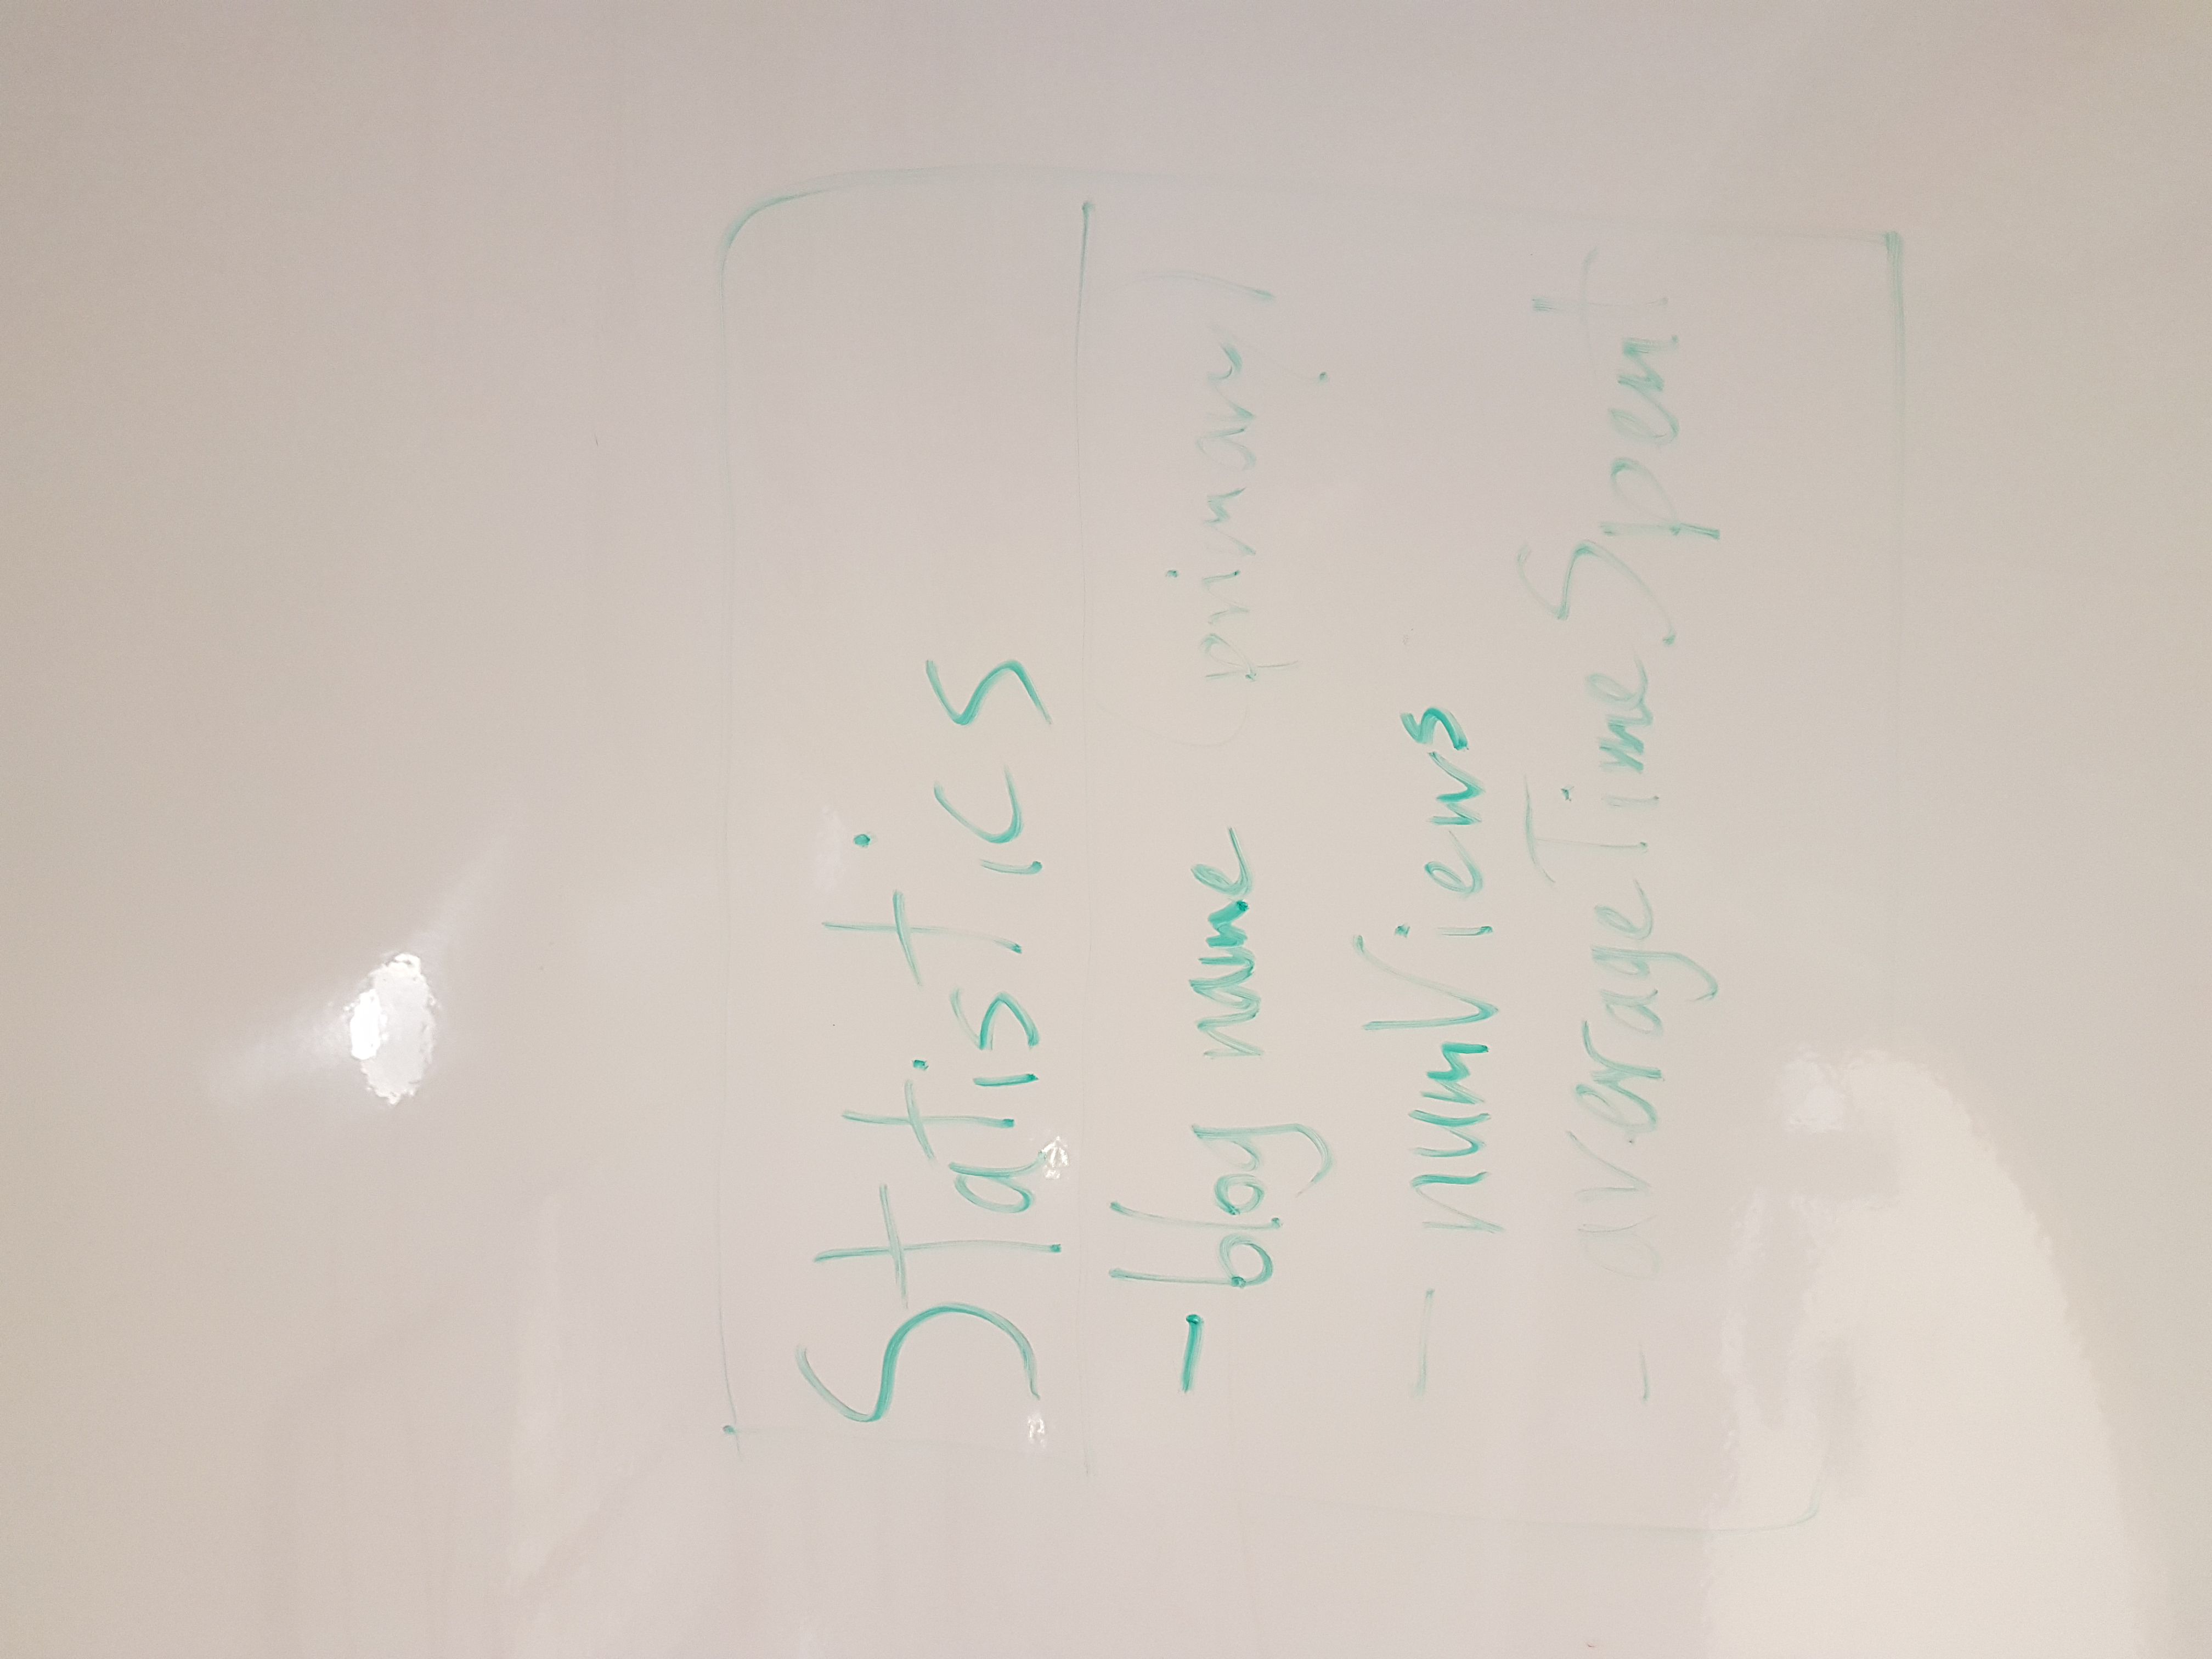 Statistics
- blog name (primary)
- numViews
- averageTimeSpent